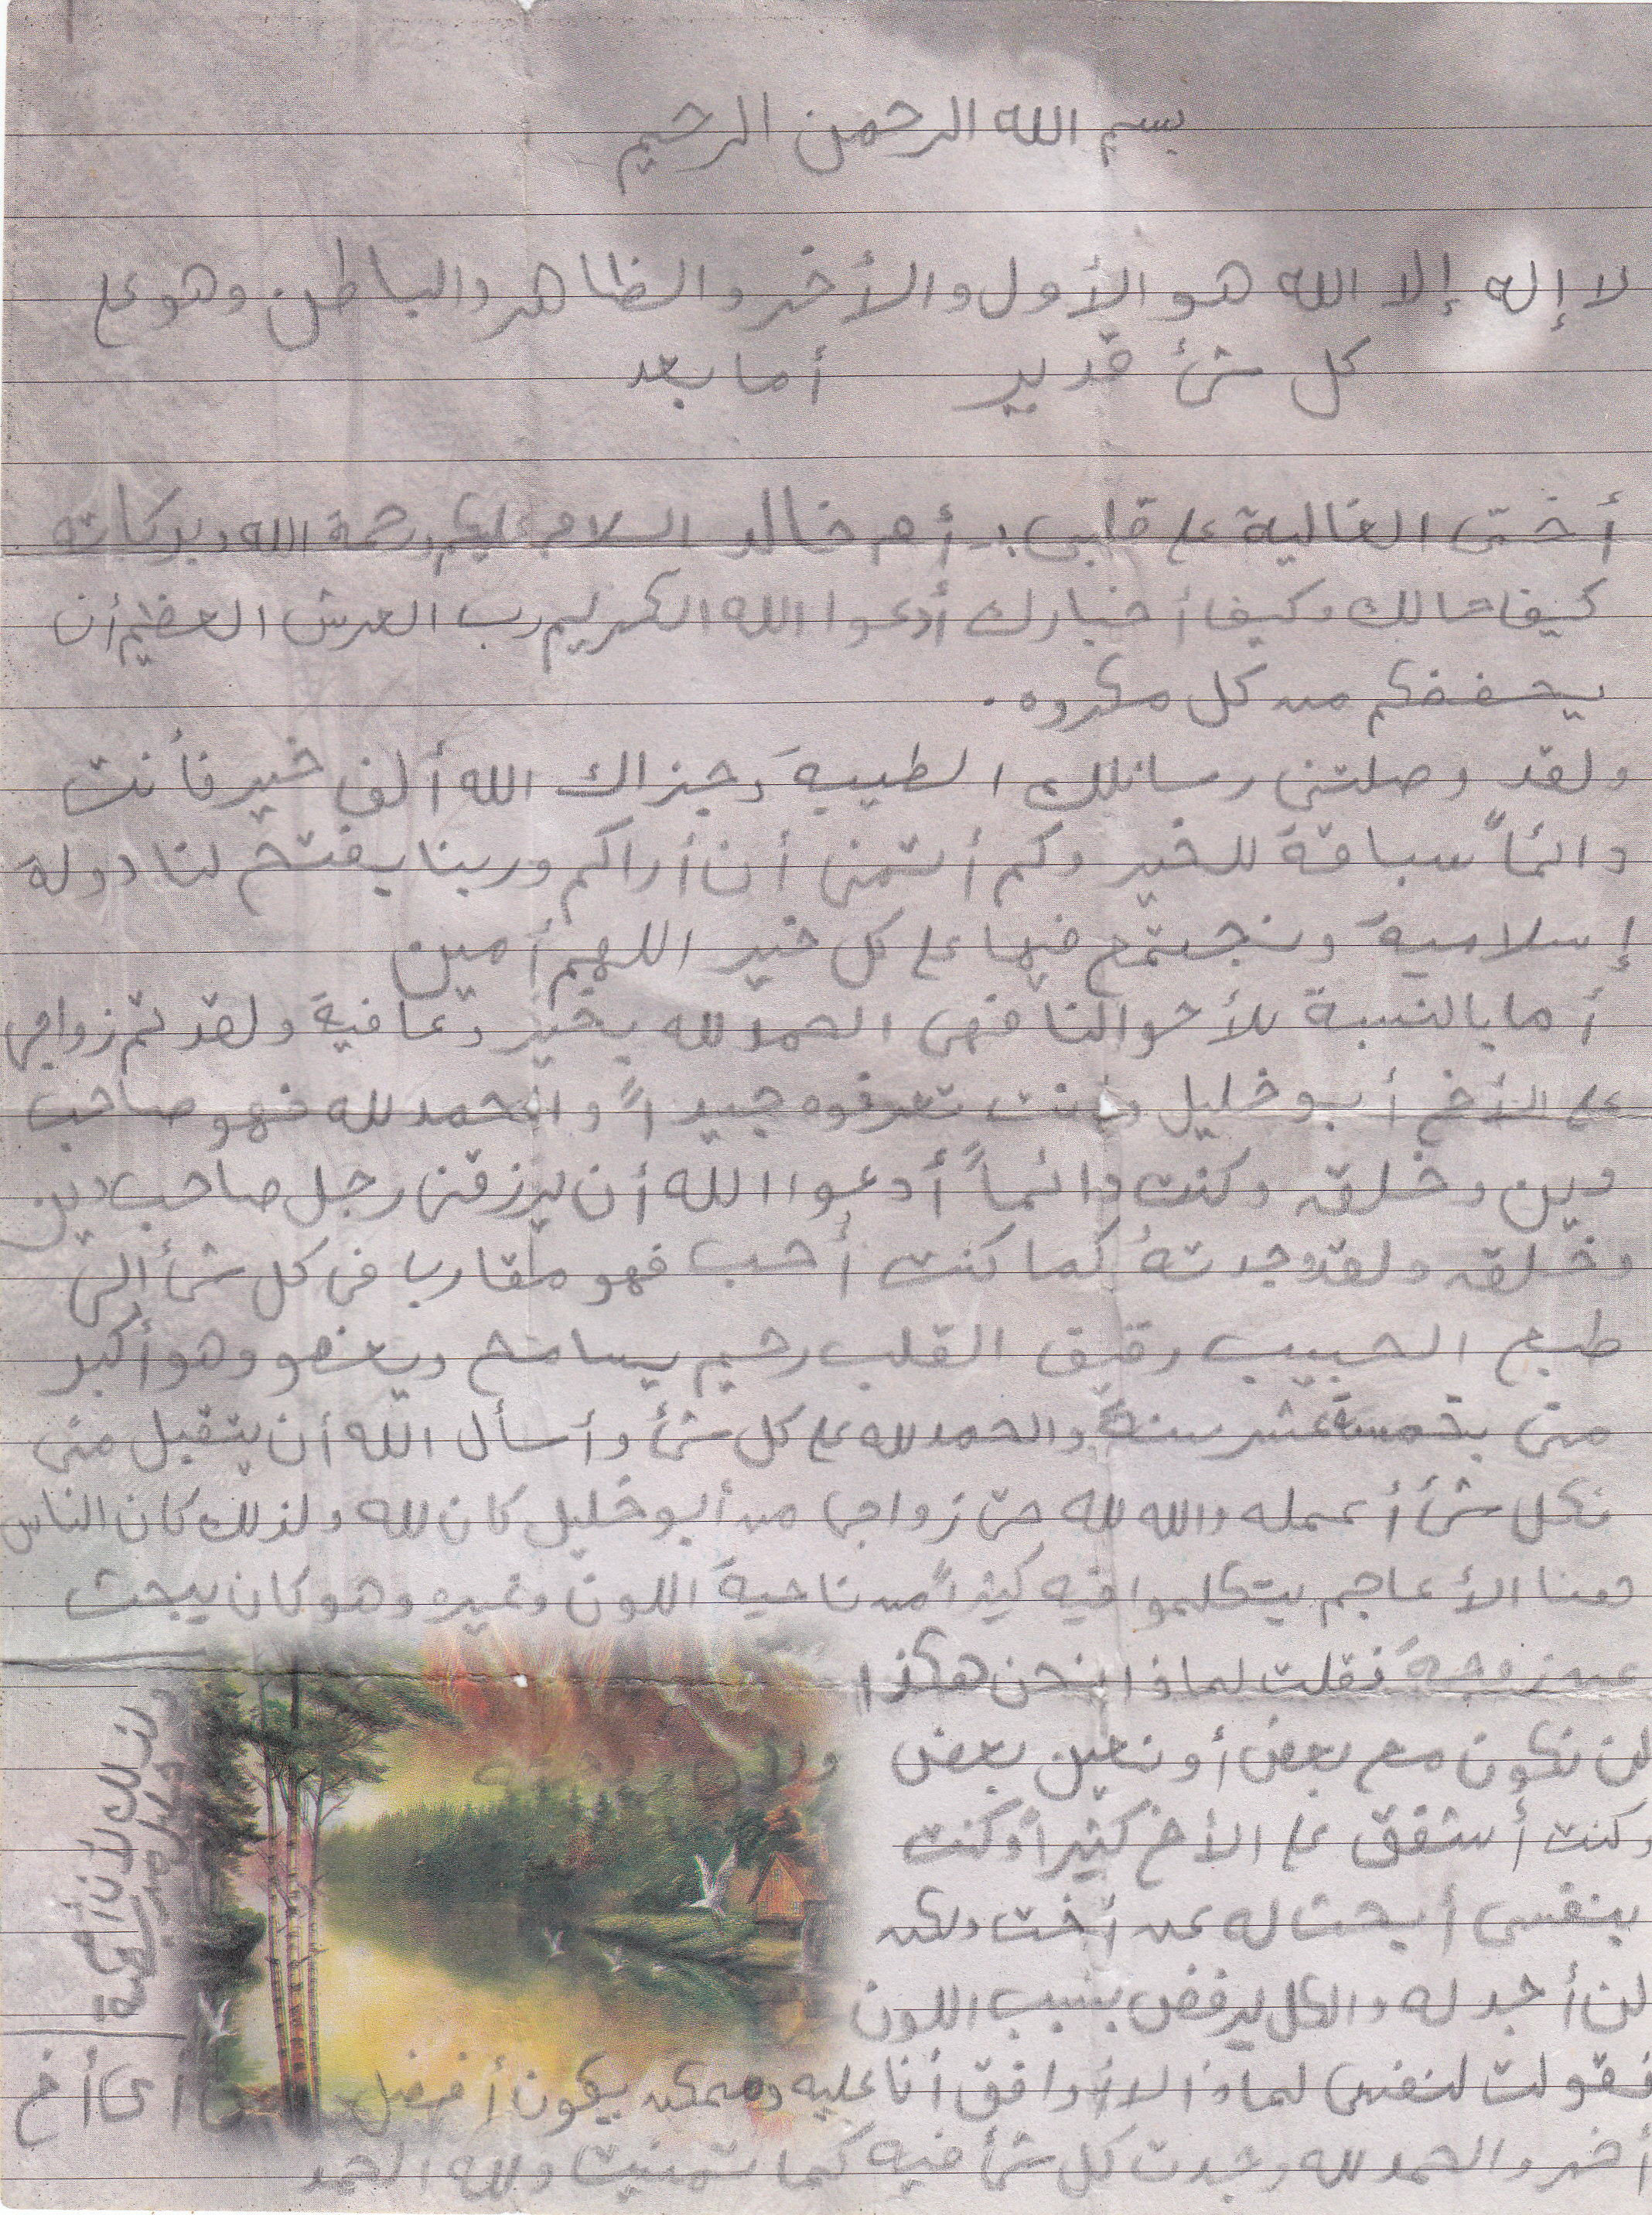 بسم الله الرحمن الرحيم
لا إله إلا الله هو الأول والأخر والظاهر والباطن وهو على
كل شئ قدير أما بعد
أختى الغالية على قلبى :- أم خالد السلام عليكم ورحمة الله وبركاته
كيف حالك وكيف أخبارك أدعوا الله الكريم رب العرش العظيم أن
يحفضكم من كل مكروه .
ولقد وصلتنى رسائلك الطيبة وجزاك الله ألف خير فأنت
دائماً سباقة للخير وكم أتمنى أن أراكم وربنا يفتح لنا دولة
إسلامية ونجتمع فيها على كل خير اللهم أمين
أما بالنسبة للأحوالنا فهى الحمد لله بخير وعافية ولقد تم زواجى
على الأخ أبو خليل وأنت تعرفوه جيداً والحمد لله فهو صاحب
دين وخلق وكنت دائماً أدعوا الله أن يرزقنى رجل صاحب دين
وخلق ولقد وجدتهُ كما كنت أحب فهو مقاربا فى كل شئ الى
طبع الحبيب رقيق القلب رحيم يسامح ويعفو وهو أكبر
منى بخمسة عشر سنة والحمد لله على كل شئ وأسأل الله أن يتقبل منى
كل شئ أعمله والله لله حتى زواجى من أبو خليل كان لله ولذلك كان الناس
هنا الأعاجم يتكلموا فيه كثيراً من ناحية اللون وغيره وهو كان يبحث
عن زوجة فقلت لماذا نحن هكذا
لن نكون مع بعض أو نعين بعض
وكنت أشفق على الأخ كثيراً وكنت
بنفسى أبحث له عن أخت ولكن
لن أجد له والكل يرفض بسبب اللون
فقولت لنفسى لماذا لا أوافق أنا عليه وممكن يكون أفضل من أى أخ
أخر والحمد لله وجدت كل شئ فيه كما تمنيت ولله الحمد
ولذلك لأن أم